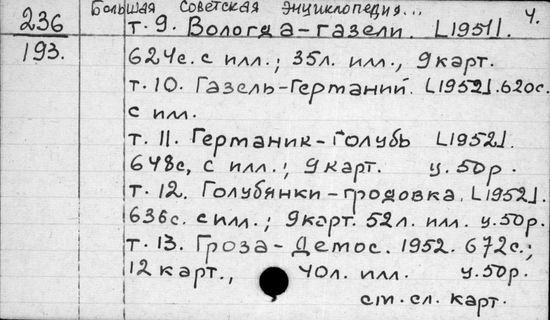 Большая Советская Энциклопедия... 4.
236
193.
т. 9. Вологда-газели. [1951].
624с. с илл.; 35л. илл., 9 карт.
т. 10. Газель-Германий. [1952]. 620с.
с им.
т. 11. Германик-Голубь [1952].
648с, с илл.; 9 карт. ц. 50р.
т. 12. Голубянки-гродовка. [1952].
636с. с илл.; 9 карт. 52л. илл. ц. 50р.
т. 13. Гроза-Демос. 1952. 672с.;
12 карт., 40л. илл. ц. 50р.
см. сл. карт.